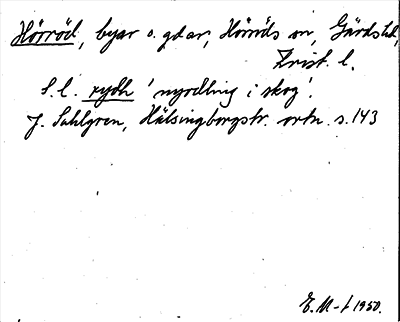 Hörröd, byar o. gdar, Hörröds sn, Gärds hd,
Krist. l.
S.l. rydh 'nyodling i skog'.
J. Sahlgren, Hälsingborgstr. ortn. s. 143
E. M-t 1950.